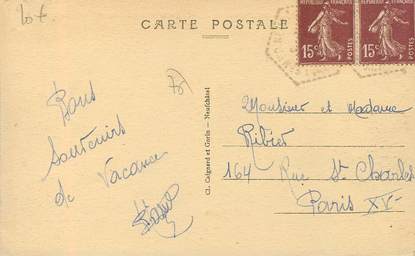 Lot
CARTE POSTALE
REPUBLIQUE FRANÇAISE
15c
POSTES
REPUBLIQUE FRANÇAISE
15c
POSTES
Bons
Souvenirs
de Vacance
Cl. Caignard et Gorin - Neufchâtel
Monsieur et Madame
Ribier
164 Rue St Charles
Paris XV